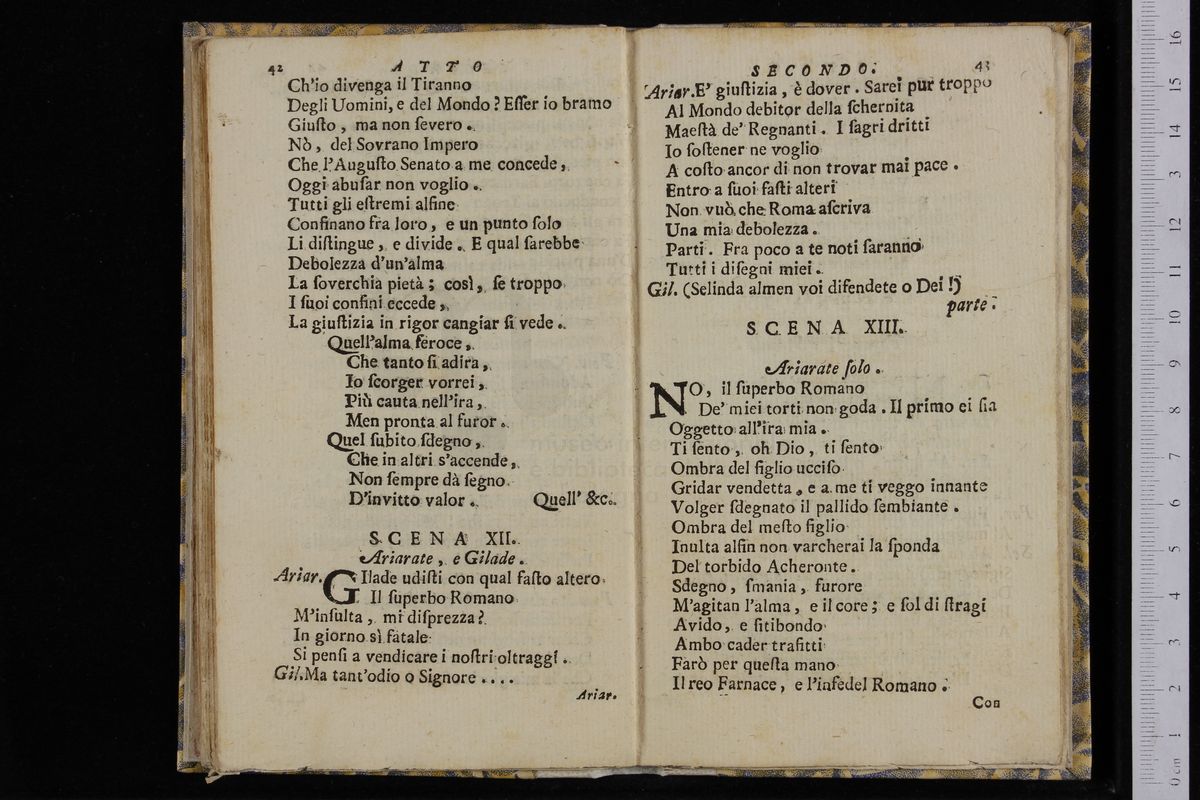 42 ATTO
Ch'io divenga il Tiranno
Degli Uomini, e del Mondo? Eſſer io bramo
Giuſto, ma non ſevero.
Nò, del Sovrano Impero
Che l'Auguſto Senato a me concede,
Oggi abuſar non voglio.
Tutti gli eſtremi alfine
Confinano fra loro, e un punto ſolo
Li diſtingue, e divide. E qual ſarebbe
Debolezza d'un'alma
La ſoverchia pietà; così, ſe troppo
I ſuoi confini eccede,
La giuſtizia in rigor cangiar ſi vede.
Quell'alma feroce,
Che tanto ſi adira,
Io ſcorger vorrei,
Più cauta nell'ira,
Men pronta al furor.
Quel ſubito ſdegno,
Che in altri s'accende,
Non ſempre dà ſegno
D'invitto valor. Quell' &c.
SCENA XII.
Ariarate, e Gilade.
Ariar. GIlade udiſti con qual faſto altero
Il ſuperbo Romano
M'inſulta, mi diſprezza?
In giorno sì fatale
Si penſi a vendicare i noſtri oltraggi.
Gil. Ma tant'odio o Signore....
Ariar.
SECONDO. 43
Ariar. E' giuſtizia, è dover. Sarei pur troppo
Al Mondo debitor della ſchernita
Maeſtà de' Regnanti. I ſagri dritti
Io ſoſtener ne voglio
A coſto ancor di non trovar mai pace.
Entro a ſuoi faſti alteri
Non vuò che Roma aſcriva
Una mia debolezza.
Parti. Fra poco a te noti ſaranno
Tutti i diſegni miei.
Gil. (Selinda almen voi difendete o Dei!)
parte.
SCENA XIII.
Ariarate ſolo.
NO, il ſuperbo Romano
De' miei torti non goda. Il primo ei ſia
Oggetto all'ira mia.
Ti ſento, oh Dio, ti ſento
Ombra del figlio ucciſo
Gridar vendetta, e a me ti veggo innante
Volger ſdegnato il pallido ſembiante.
Ombra del meſto figlio
Inulta alfin non varcherai la ſponda
Del torbido Acheronte.
Sdegno, ſmania, furore
M'agitan l'alma, e il core; e ſol di ſtragi
Avido, e ſitibondo
Ambo cader trafitti
Farò per queſta mano
Il reo Farnace, e l'infedel Romano.
Con
0 cm 1 2 3 4 5 6 7 8 9 10 11 12 13 14 15 16